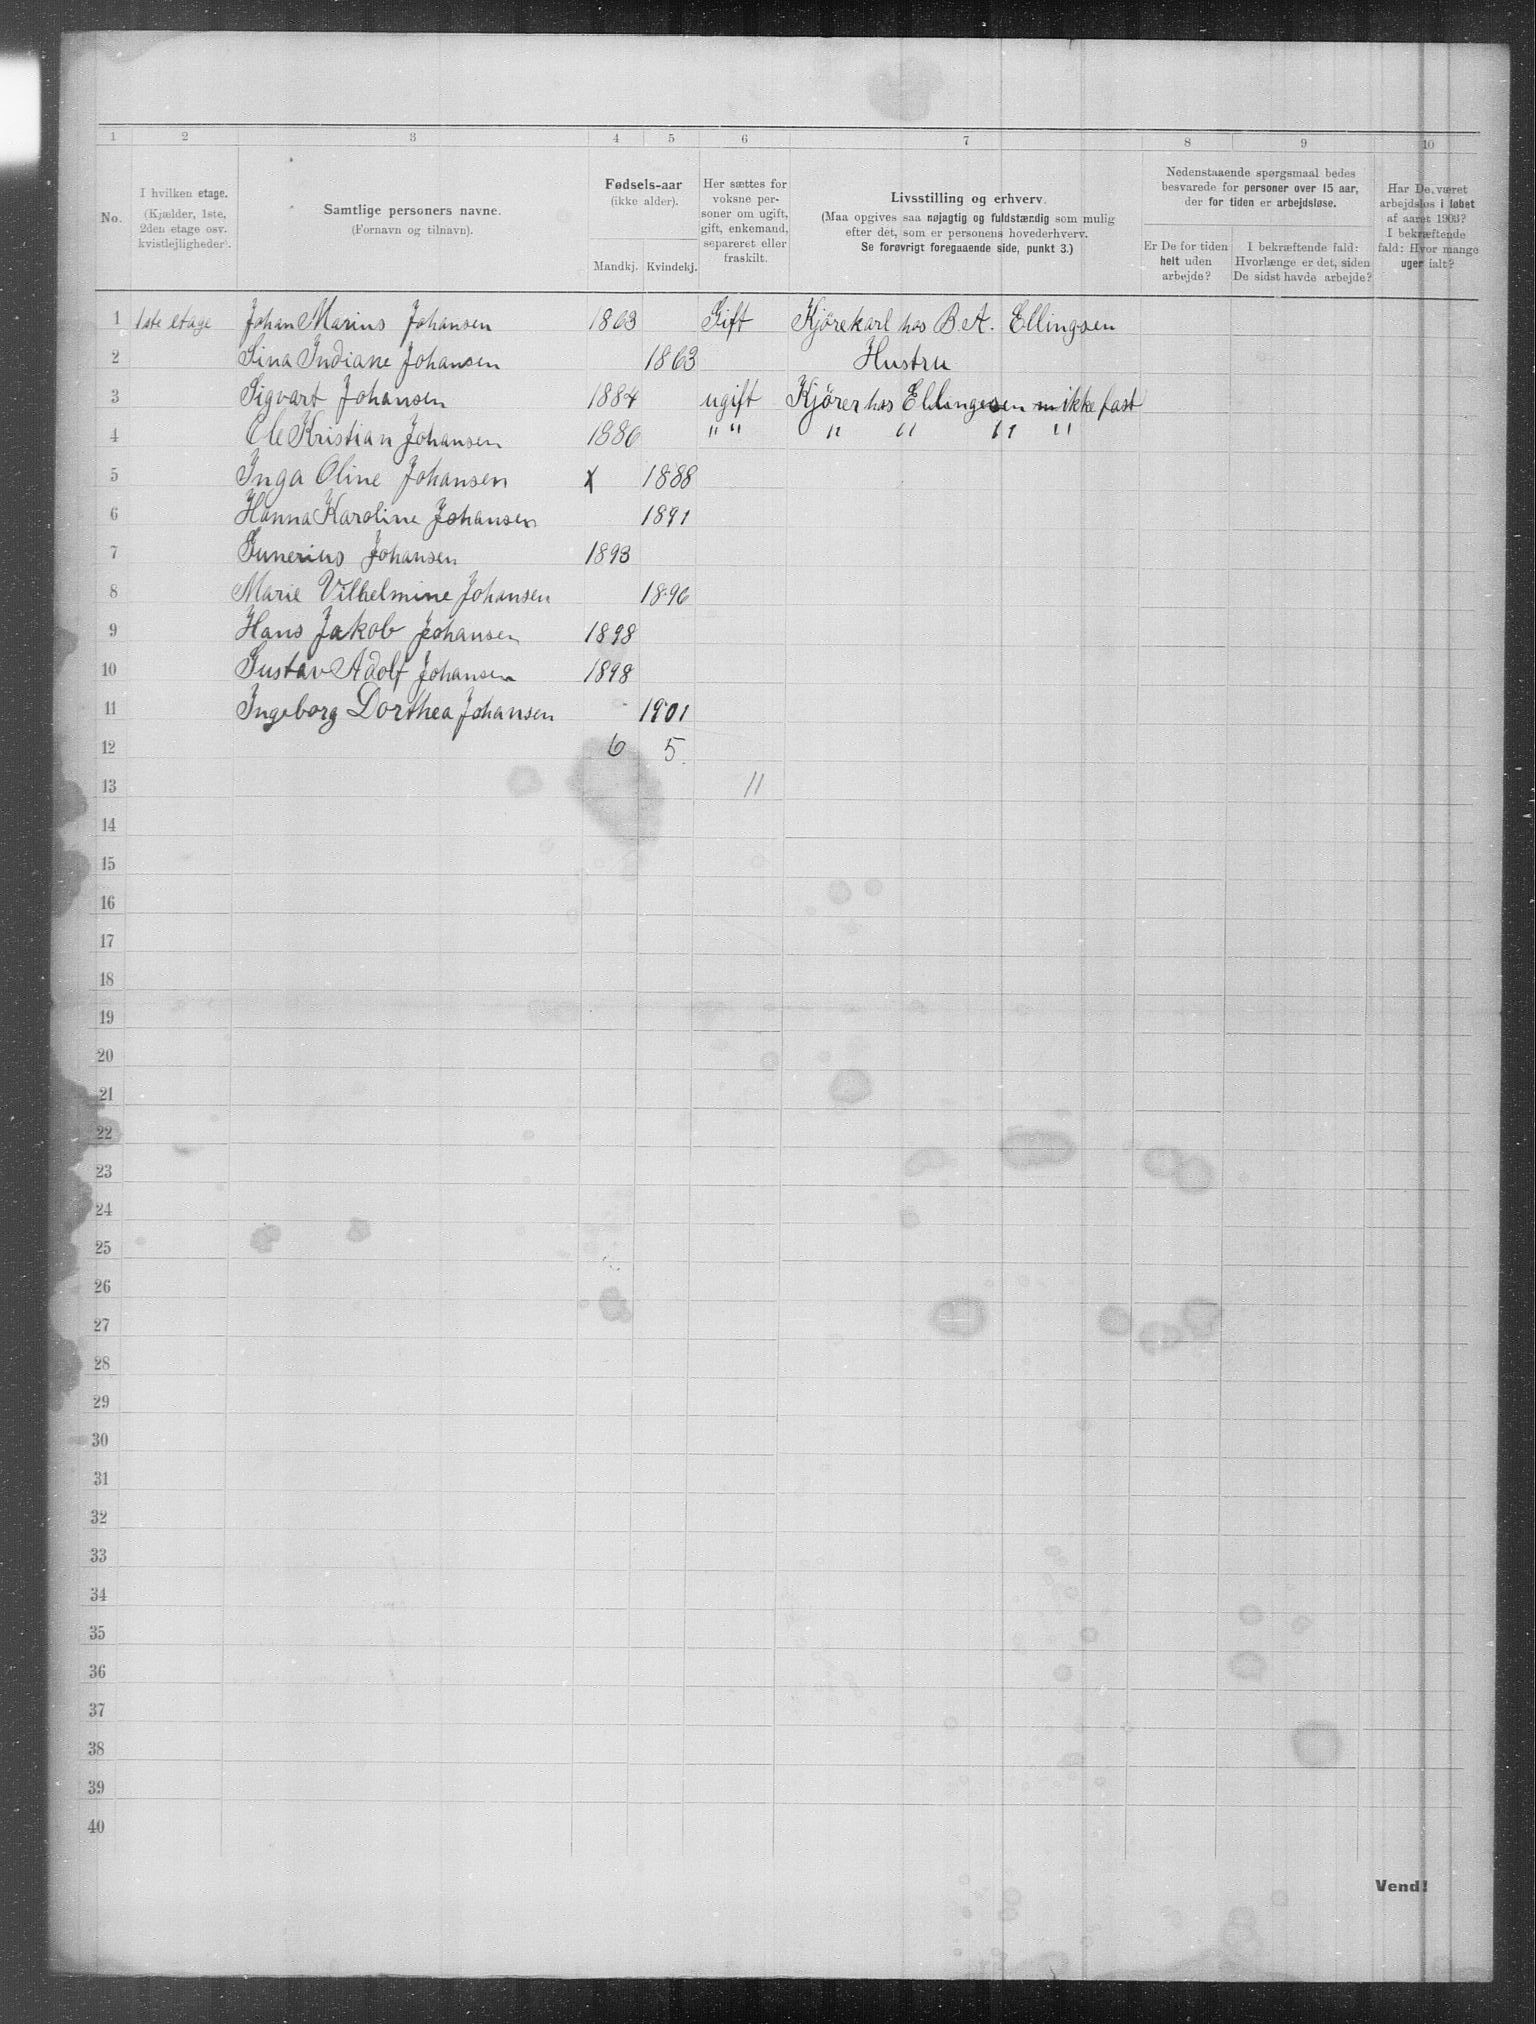 1 2 3 4 5 6 7 8 9 10
No.
I hvilken etage.
(Kjælder, 1ste,
2den etage osv.
kvistlejligheder).
Samtlige personers navne.
(Fornavn og tilnavn).
Fødsels-aar
(ikke alder).
Mandkj. Kvindekj.
Her sættes for
voksne per-
soner om ugift,
gift, enkemand,
separeret eller
fraskilt.
Livsstilling og erhverv.
(Maa opgives saa nøjagtig og fuldstændig som mulig
efter det, som er personens hovederhverv.
Se forøvrigt foregaaende side, punkt 3.)
Nedenstaaende spørgsmaal bedes
besvarede for personer over 15 aar,
der for tiden er arbejdsløse.
Er De for tiden
helt uden
arbejde?
I bekræftende fald:
Hvorlænge er det, siden
De sidst havde arbejde?
Har De været
arbejdsløs i løbet
af aaret 1903?
I bekræftende
fald: Hvor mange
uger ialt?
1 1ste etage Johan Marius Johansen 1863 Gift Kjörekarl hos B. A. Ellingsen
2 Sina Indiane Johansen 1863 Hustru
3 Sigvart Johansen 1884 ugift Kjörer hos Ellingsen ikke fast
4 Ole Kristian Johansen 1886 " " " " " "
5 Inga Oline Johansen x 1888
6 Hanna Karoline Johansen 1891
7 Johansen 1893
8 Marie Vilhelmine Johansen 1896
9 Hans Jakob Johansen 1898
10 Gustav Adolf Johansen 1898
11 Ingeborg Dorthea Johansen 1901
12 6 5
13 11
14
15
16
17
18
19
20
21
22
23
24
25
26
27
28
29
30
31
32
33
34
35
36
37
38
39
40
Vend!